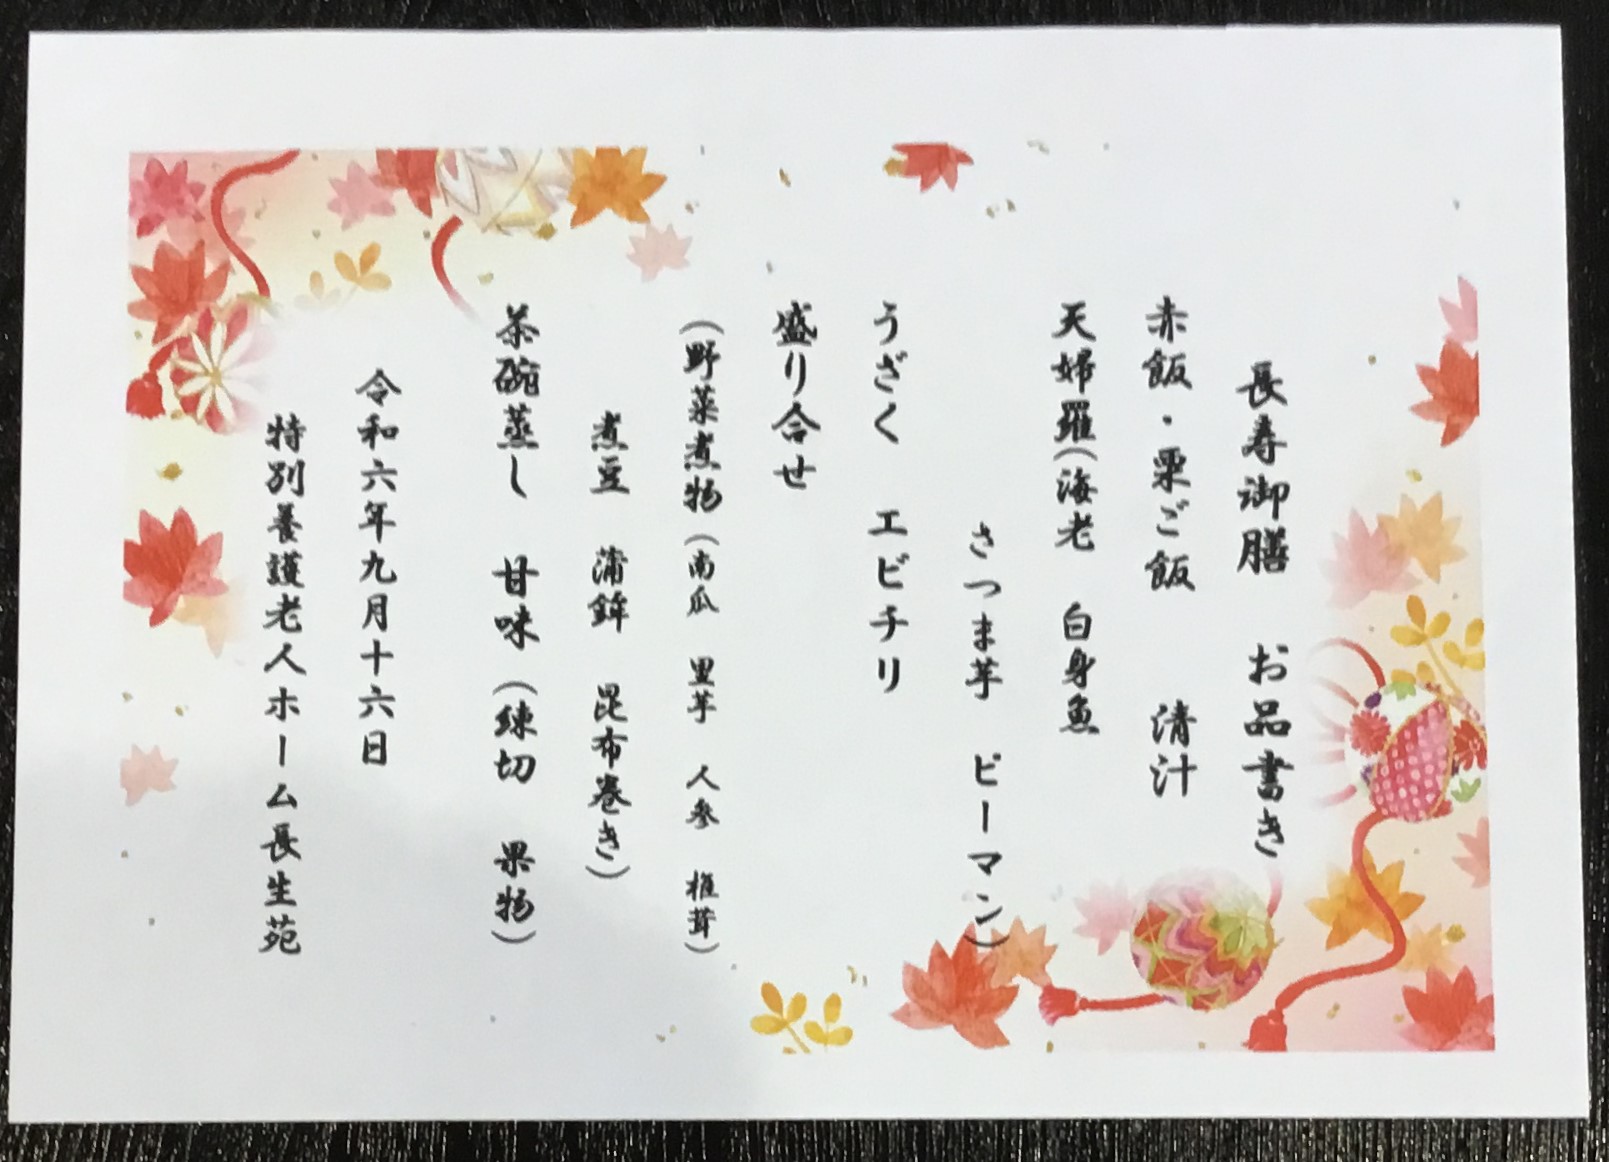 長寿御膳　お品書き
赤飯・栗ご飯　　清汁
天婦羅(海老　白身魚
さつま芋　ピーマン)
うざく　エビチリ
盛り合せ
(野菜煮物(南瓜　里芋　人参　椎茸)
煮豆　蒲鉾　昆布巻き)
茶碗蒸し　甘味(練切　果物)
令和六年九月十六日
特別養護老人ホーム長生苑